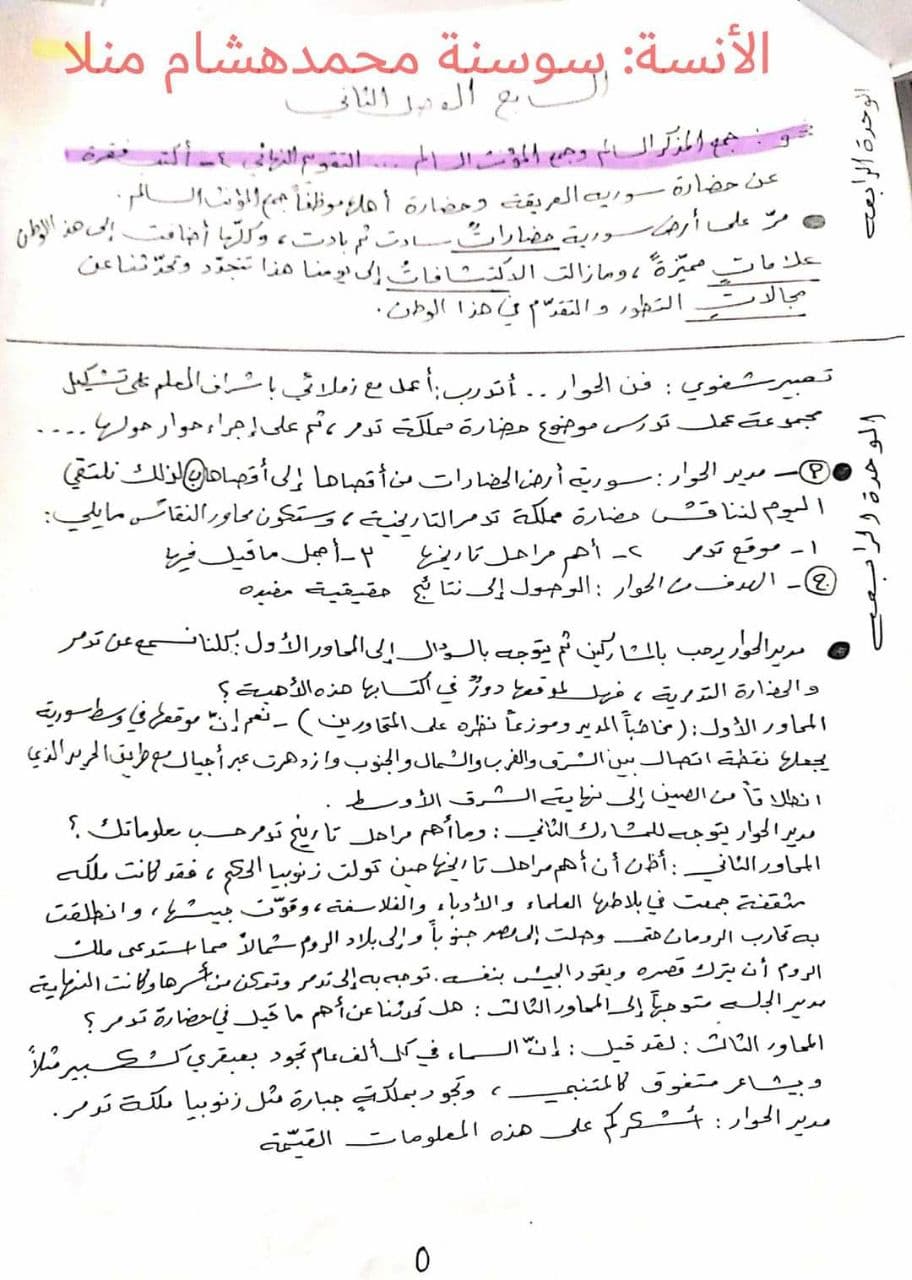 الأنسة: سوسنة محمدهشام منلا
السابع الفصل الثاني
الوحدة الرابعة
نحو: جمع المذكر السالم وجمع المؤنث السالم ... التقويم النهائي ٤- أكتب فقرة
عن حضارة سورية العريقة وحضارة أهلها موظفاً جمع المؤنث السالم.
مرّ على أرض سورية حضاراتٌ سادت ثم بادت، وكلّها أضافت إلى هذا الوطن
علاماتٍ مميّزةً، ومازالت الاكتشافاتُ إلى يومنا هذا تتجدّد وتحدّثنا عن
مجالاتِ التطور والتقدّم في هذا الوطن.
الوحدة الرابعة
تعبير شفوي: فن الحوار .. أتدرب: أعمل مع زملائي باشراف المعلم على تشكيل
مجموعة عمل تدرس موضوع حضارة مملكة تدمر، ثم على إجراء حوار حولها ....
م- مدير الحوار: سورية أرض الحضارات من أقصاها إلى أقصاها ب لذلك نلتقي
اليوم لنناقش حضارة مملكة تدمر التاريخية، وستكون محاور النقاش ما يلي:
١- موقع تدمر ٢- أهم مراحل تاريخها ٣- أجمل ما قيل فيها
ج- الهدف من الحوار: الوصول إلى نتائج حقيقية مفيده
مدير الحوار يرحب بالمشاركين ثم يتوجه بالسؤال إلى المحاور الأول: كلنا نسمع عن تدمر
والحضارة التدمرية، فهل لموقعها دورٌ في اكتسابها هذه الأهمية؟
المحاور الأول: (مخاطباً المدير وموزعاً نظره على المتحاورين) - نعم إنّ موقعها في وسط سورية
يجعلها نقطة اتصال بين الشرق والغرب والشمال والجنوب وازدهرت عبر أجيال مع طريق الحرير الذي
انطلاقاً من الصين إلى نهاية الشرق الأوسط.
مدير الحوار يتوجه للمشارك الثاني: وما أهم مراحل تاريخ تدمر حسب معلوماتك؟
المحاور الثاني: أظن أن أهم مراحل تاريخها حين تولت زنوبيا الحكم، فقد كانت ملكه
مثقفة جمعت في بلاطها العلماء والأدباء والفلاسفة، وقوّت جيشها، وانطلقت
به تحارب الرومان حتى وصلت إلى مصر جنوباً وإلى بلاد الروم شمالاً مما استدعى ملك
الروم أن يترك قصره ويقود الجيش بنفسه. توجه به إلى تدمر وتمكن من أسرها وكانت النهاية
مدير الجلسه متوجهاً إلى المحاور الثالث: هل تحدثنا عن أهم ما قيل في حضارة تدمر؟
المحاور الثالث: لقد قيل: إنّ السماء في كل ألف عام تجود بعبقري كشكسبير مثلاً
وبشاعر متفوق كالمتنبي، وتجود بملكةٍ جبارة مثل زنوبيا ملكة تدمر.
مدير الحوار: أشكركم على هذه المعلومات القيّمة
٥